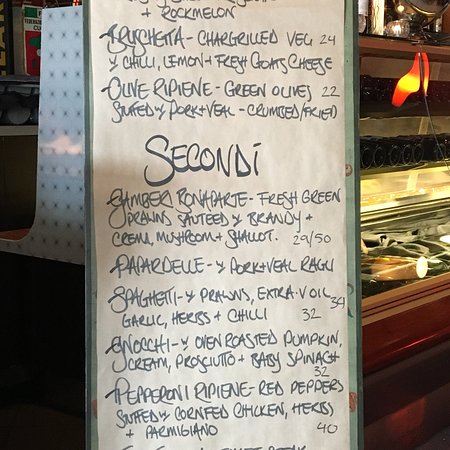 + ROCKMELON
BRUSCHETTA - CHARGRILLED VEG 24
W CHILLI, LEMON + FRESH GOATS CHEESE
OLIVE RIPIENE - GREEN OLIVES 22
STUFFED W PORK + VEAL - CRUMBED/FRIED
SECONDI
GAMBERI BONAPARTE - FRESH GREEN
PRAWNS SAUTEED W BRANDY +
CREM, MUSHROOM + SHALLOT. 29/50
PAPARDELLE - W PORK + VEAL RAGU
34
SPAGHETTI - W PRAWNS, EXTRA. V OIL
GARLIC, HERBS + CHILLI 32
GNOCCHI - W OVEN ROASTED PUMPKIN,
SCREAM, PROSCIUTO + BABY SPINACH
32
PEPPERONI RIPIENE - RED PEPPERS
STUFFED W CORNFED CHICKEN, HERBS
+ PARMIGIANO 40